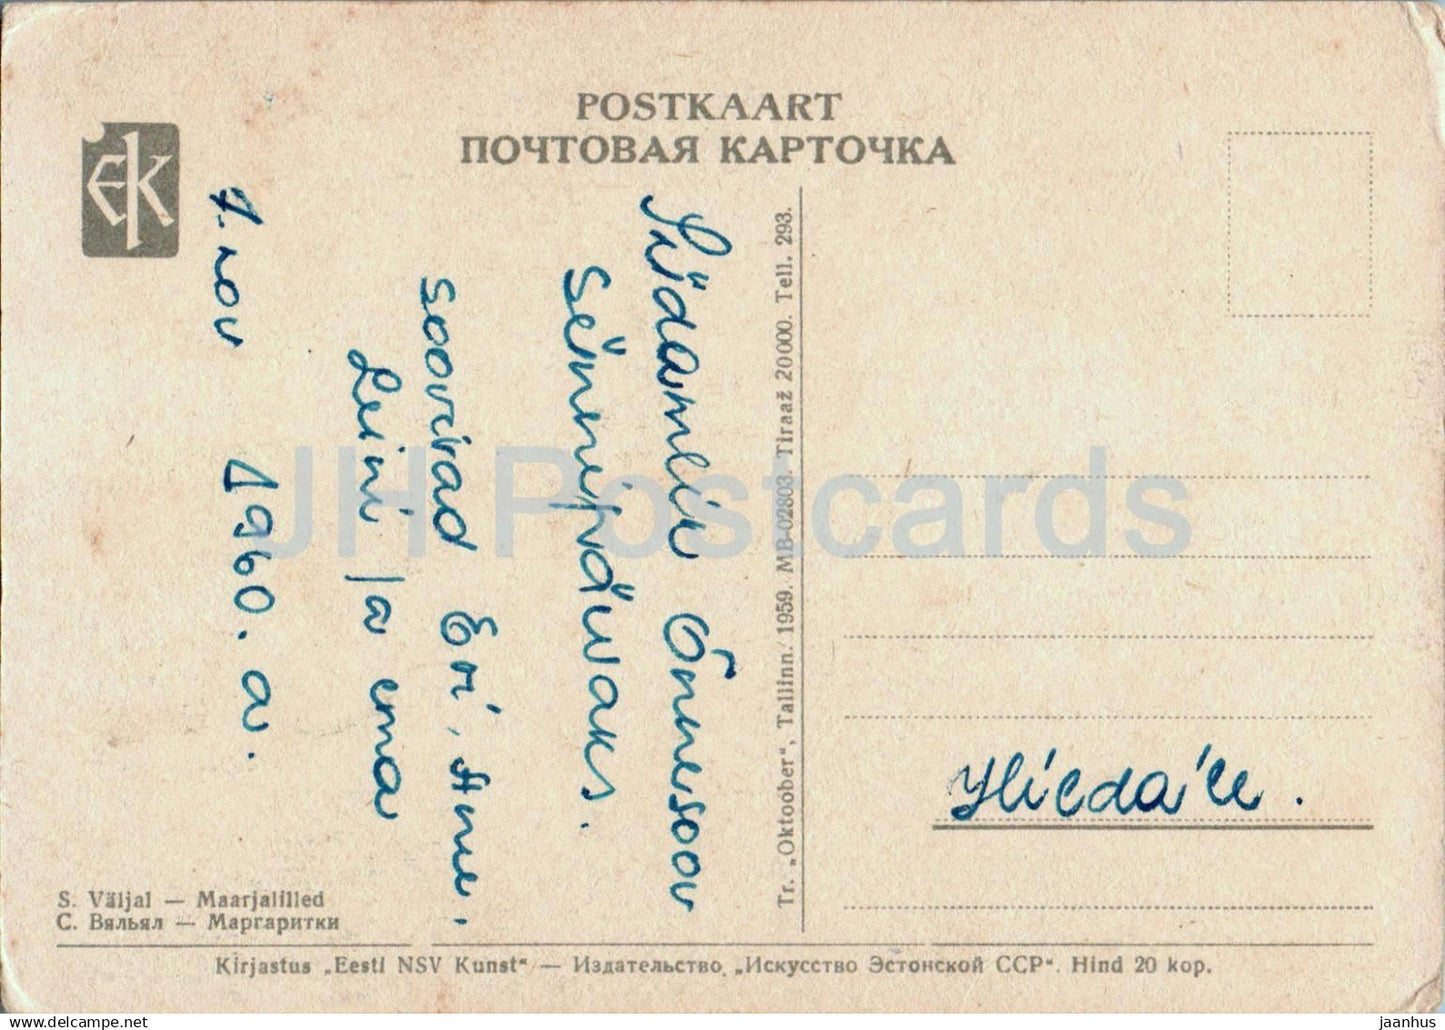 POSTKAART
ПОЧТОВАЯ КАРТОЧКА
EK
Südamlik Õnnesoov
Sünnipäevaks.
soovivad Evi, Anne,
Leini ja ema
7. nov 1960. a.
Tr. „Oktoober", Tallinn. 1959. MB-02803. Tiraaž 20000. Tell. 293.
Hildale.
S. Väljal — Maarjalilled
С. Вяльял — Маргаритки
Kirjastus „Eesti NSV Kunst" — Издательство „Искусство Эстонской ССР". Hind 20 kop.
JH Postcards
www.delcampe.net
jaanhus